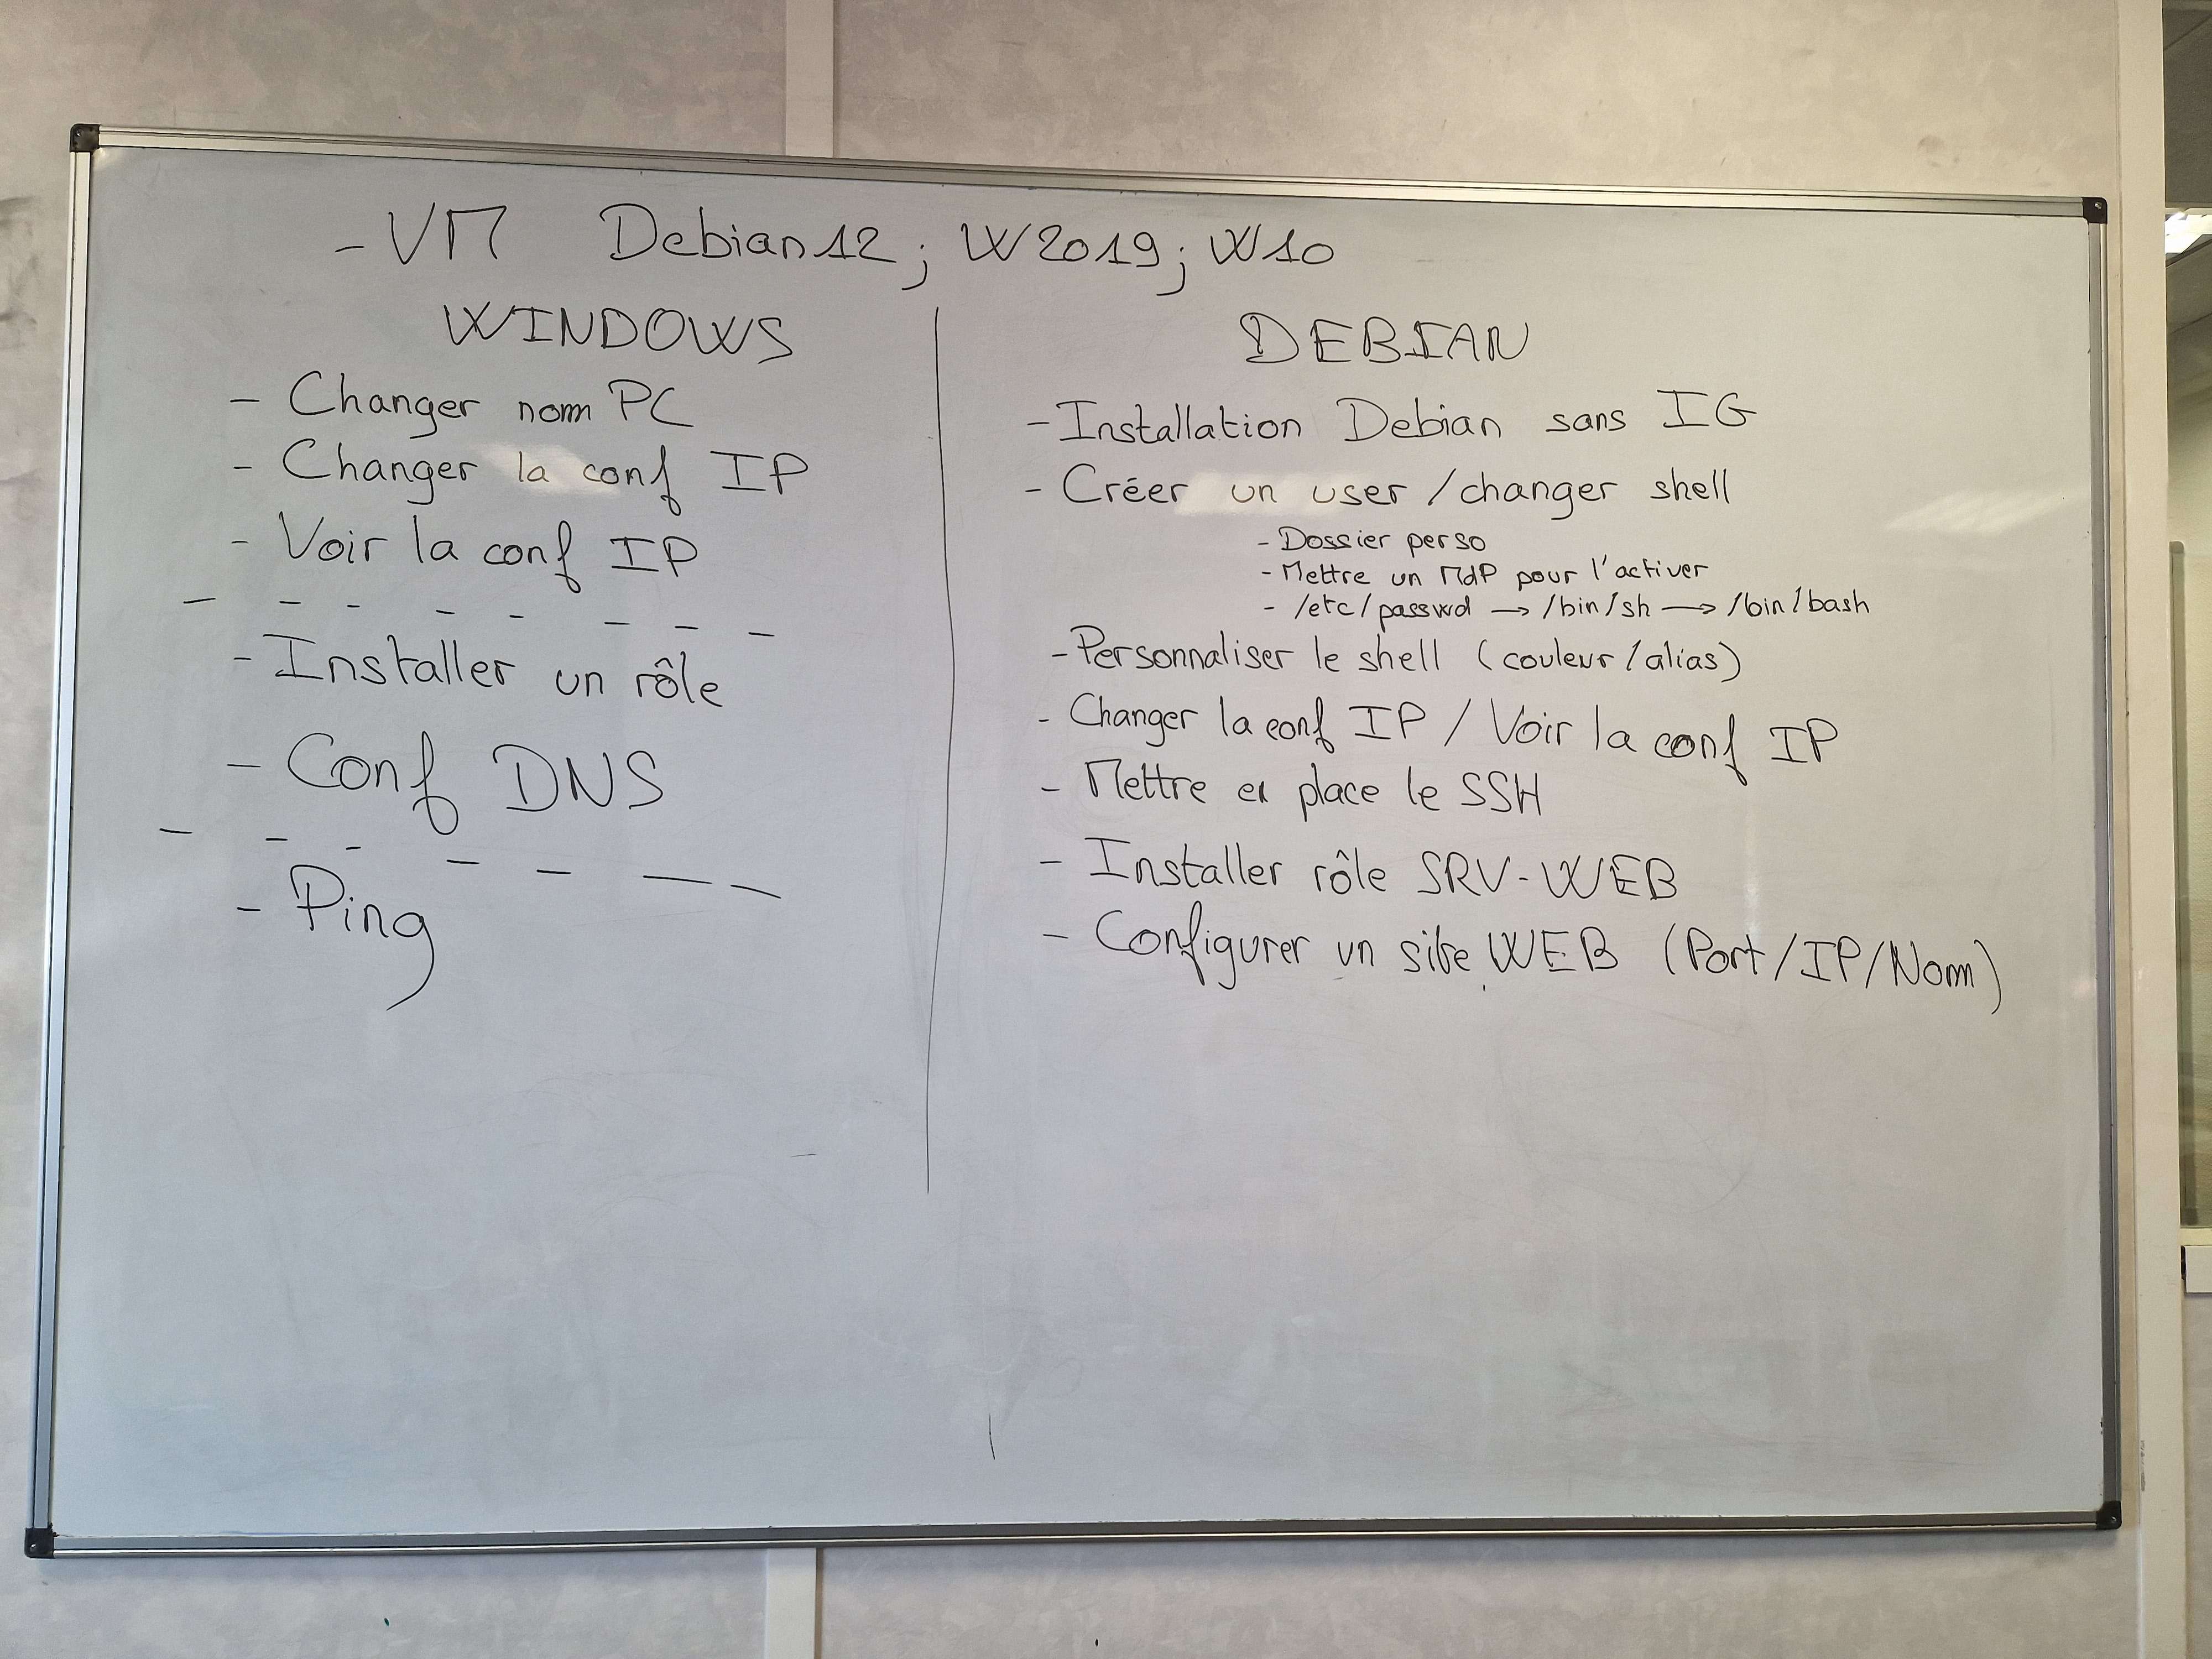 - VM Debian 12 ; W2019 ; W10
WINDOWS
- Changer nom PC
- Changer la conf IP
- Voir la conf IP
- Installer un rôle
- Conf DNS
- Ping
DEBIAN
- Installation Debian sans IG
- Créer un user / changer shell
- Dossier perso
- Mettre un MdP pour l'activer
- /etc/passwd → /bin/sh → /bin/bash
- Personnaliser le shell (couleur / alias)
- Changer la conf IP / Voir la conf IP
- Mettre en place le SSH
- Installer rôle SRV-WEB
- Configurer un site WEB (Port/IP/Nom)